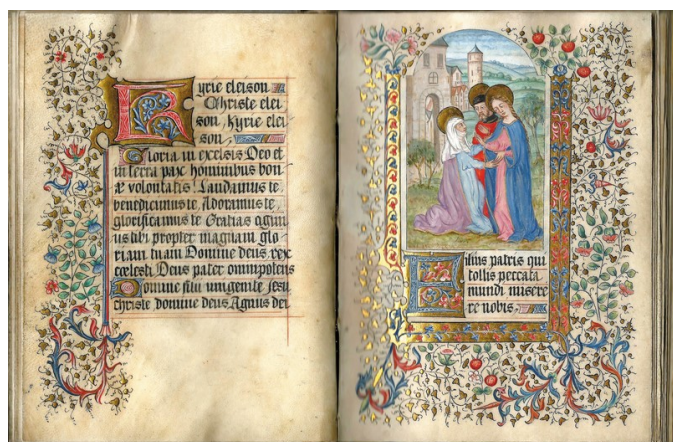 Kyrie eleison
Christe elei
son, Kyrie elei
son
Gloria in excelsis Deo et
in terra pax hominibus bon
æ voluntatis! Laudamus te,
benedicimus te, Adoramus te,
glorificamus te Gratias agim
us tibi propter magnam glo
riam tuam Domine deus, rex
cœlesti, Deus pater omnipotens
Domine fili unigenite Jesu
christe domine deus, Agnus dei
Filius patris qui
tollis peccata
mundi misere
re nobis